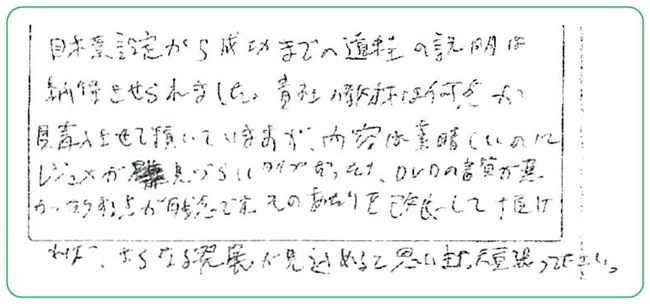 目標設定から成功までの道程の説明は
納得させられました。貴社の教材は何点か
購入させて頂いていますが、内容は素晴しいのに
レジュメが見づらいタイプだったり、DVDの音質が悪
かったりする点が残念です。そのあたりを改良して頂け
れば、さらなる発展が見込めると思います。頑張ってください。